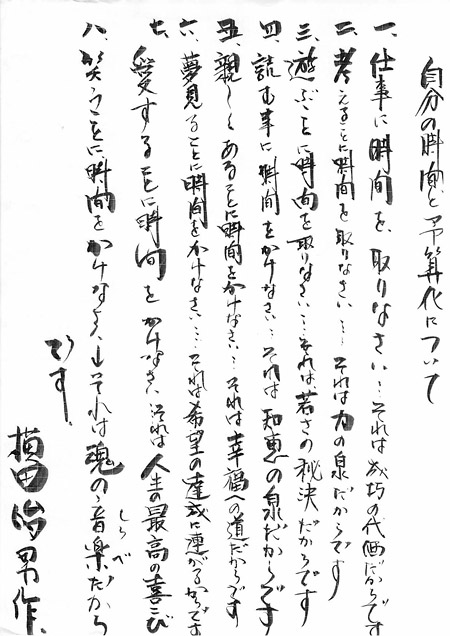 自分の時間と予算化について
一、仕事に時間を、取りなさい…それは成功の代価だからです
二、考えることに時間を取りなさい…それは力の泉だからです
三、遊ぶことに時間を取りなさい…それは若さの秘決だからです
四、読む事に時間をかけなさい…それは知恵の泉だからです
五、親しくあることに時間をかけなさい…それは幸福への道だからです
六、夢見ることに時間をかけなさい…それは希望の達成に連がるからです
七、愛することに時間をかけなさい…それは人生の最高の喜び
八、笑うことに時間をかけなさい…それは魂の音楽だから
しらべ
です。
田 男作